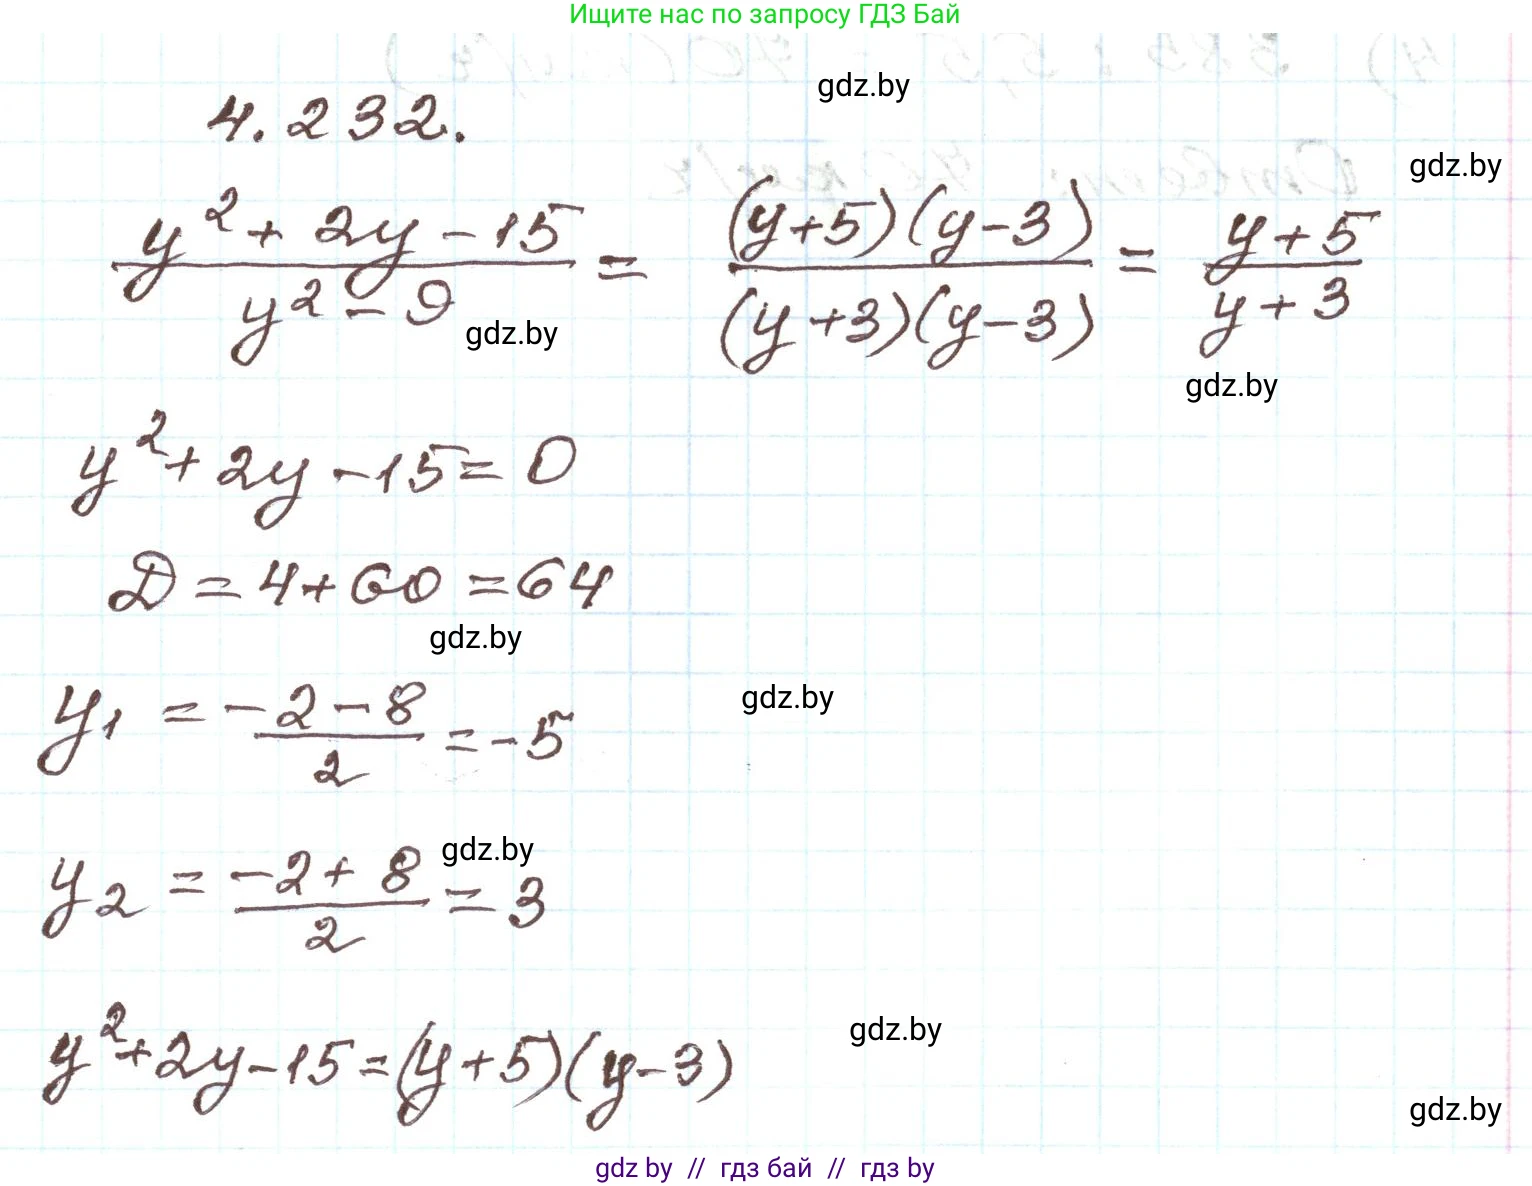 Ищите нас по запросу ГДЗ Бай
gdz.by
4.232.
gdz.by
(y² + 2y - 15)/(y² - 9) = ((y+5)(y-3))/((y+3)(y-3)) = (y+5)/(y+3)
gdz.by
gdz.by
y² + 2y - 15 = 0
Д = 4 + 60 = 64
gdz.by
gdz.by
y₁ = (-2 - 8)/2 = -5
gdz.by
y₂ = (-2 + 8)/2 = 3
gdz.by
y² + 2y - 15 = (y+5)(y-3)
gdz.by
gdz by // гдз бай // гдз by